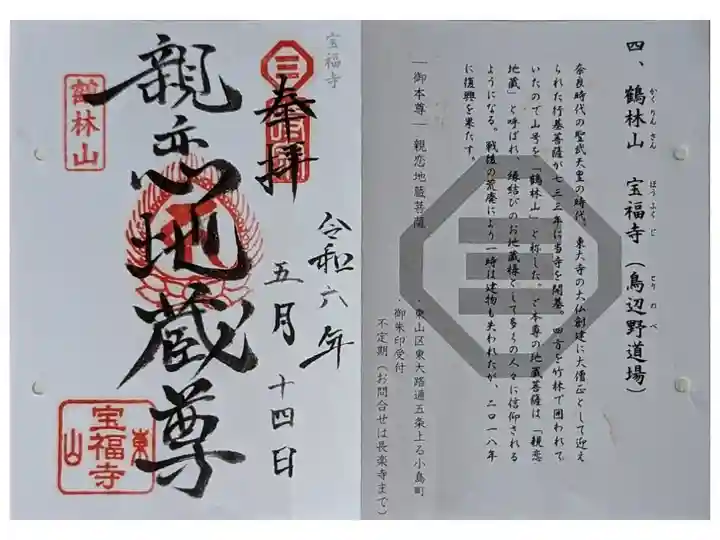 四、鶴林山 宝福寺(鳥辺野道場)
かくりんさん ほうふくじ とりのべ
奈良時代の聖武天皇の時代、東大寺の大仏創建に大僧正として迎え
られた行基菩薩が七三三年に当寺を開基。四方を竹林で囲われて
いたので山号を「鶴林山」と称した。ご本尊の地蔵菩薩は「親恋
地蔵」と呼ばれ、縁結びのお地蔵様として多くの人々に信仰される
ようになる。戦後の荒廃により一時は建物も失われたが、二〇一八年
に復興を果たす。
―御本尊― 親恋地蔵菩薩
・東山区東大路通五条上る小島町
・御朱印受付
不定期(お問合せは長楽寺まで)
宝福寺
奉拝
令和六年
五月十四日
親恋地蔵尊
鶴林山
東山
宝福寺